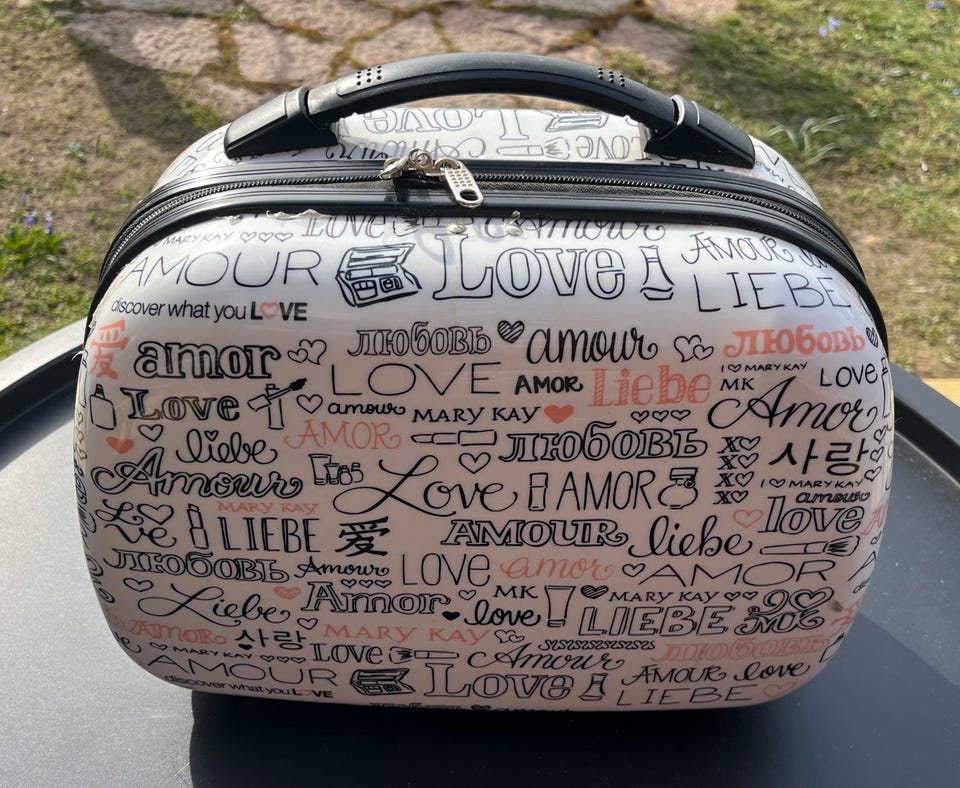 Love
Love
Love Amour
MARY KAY
AMOUR Love! AMOUR
LIEBE
discover what you LOVE
爱 amor любовь amour любовь
LOVE AMOR liebe I MARY KAY
MK LOVE
Love amour MARY KAY Amor
AMOR любовь
liebe XO 사랑
Amour Love AMOR XO I MARY KAY
amour
MARY KAY love
Love LIEBE 爱 AMOUR liebe
любовь Amour LOVE amor AMOR
Liebe Amor MK MARY KAY
love LIEBE MK
AMOR 사랑 MARY KAY любовь
MARY KAY LOVE Amour
AMOUR Love! AMOUR love
discover what you LOVE LIEBE
amour